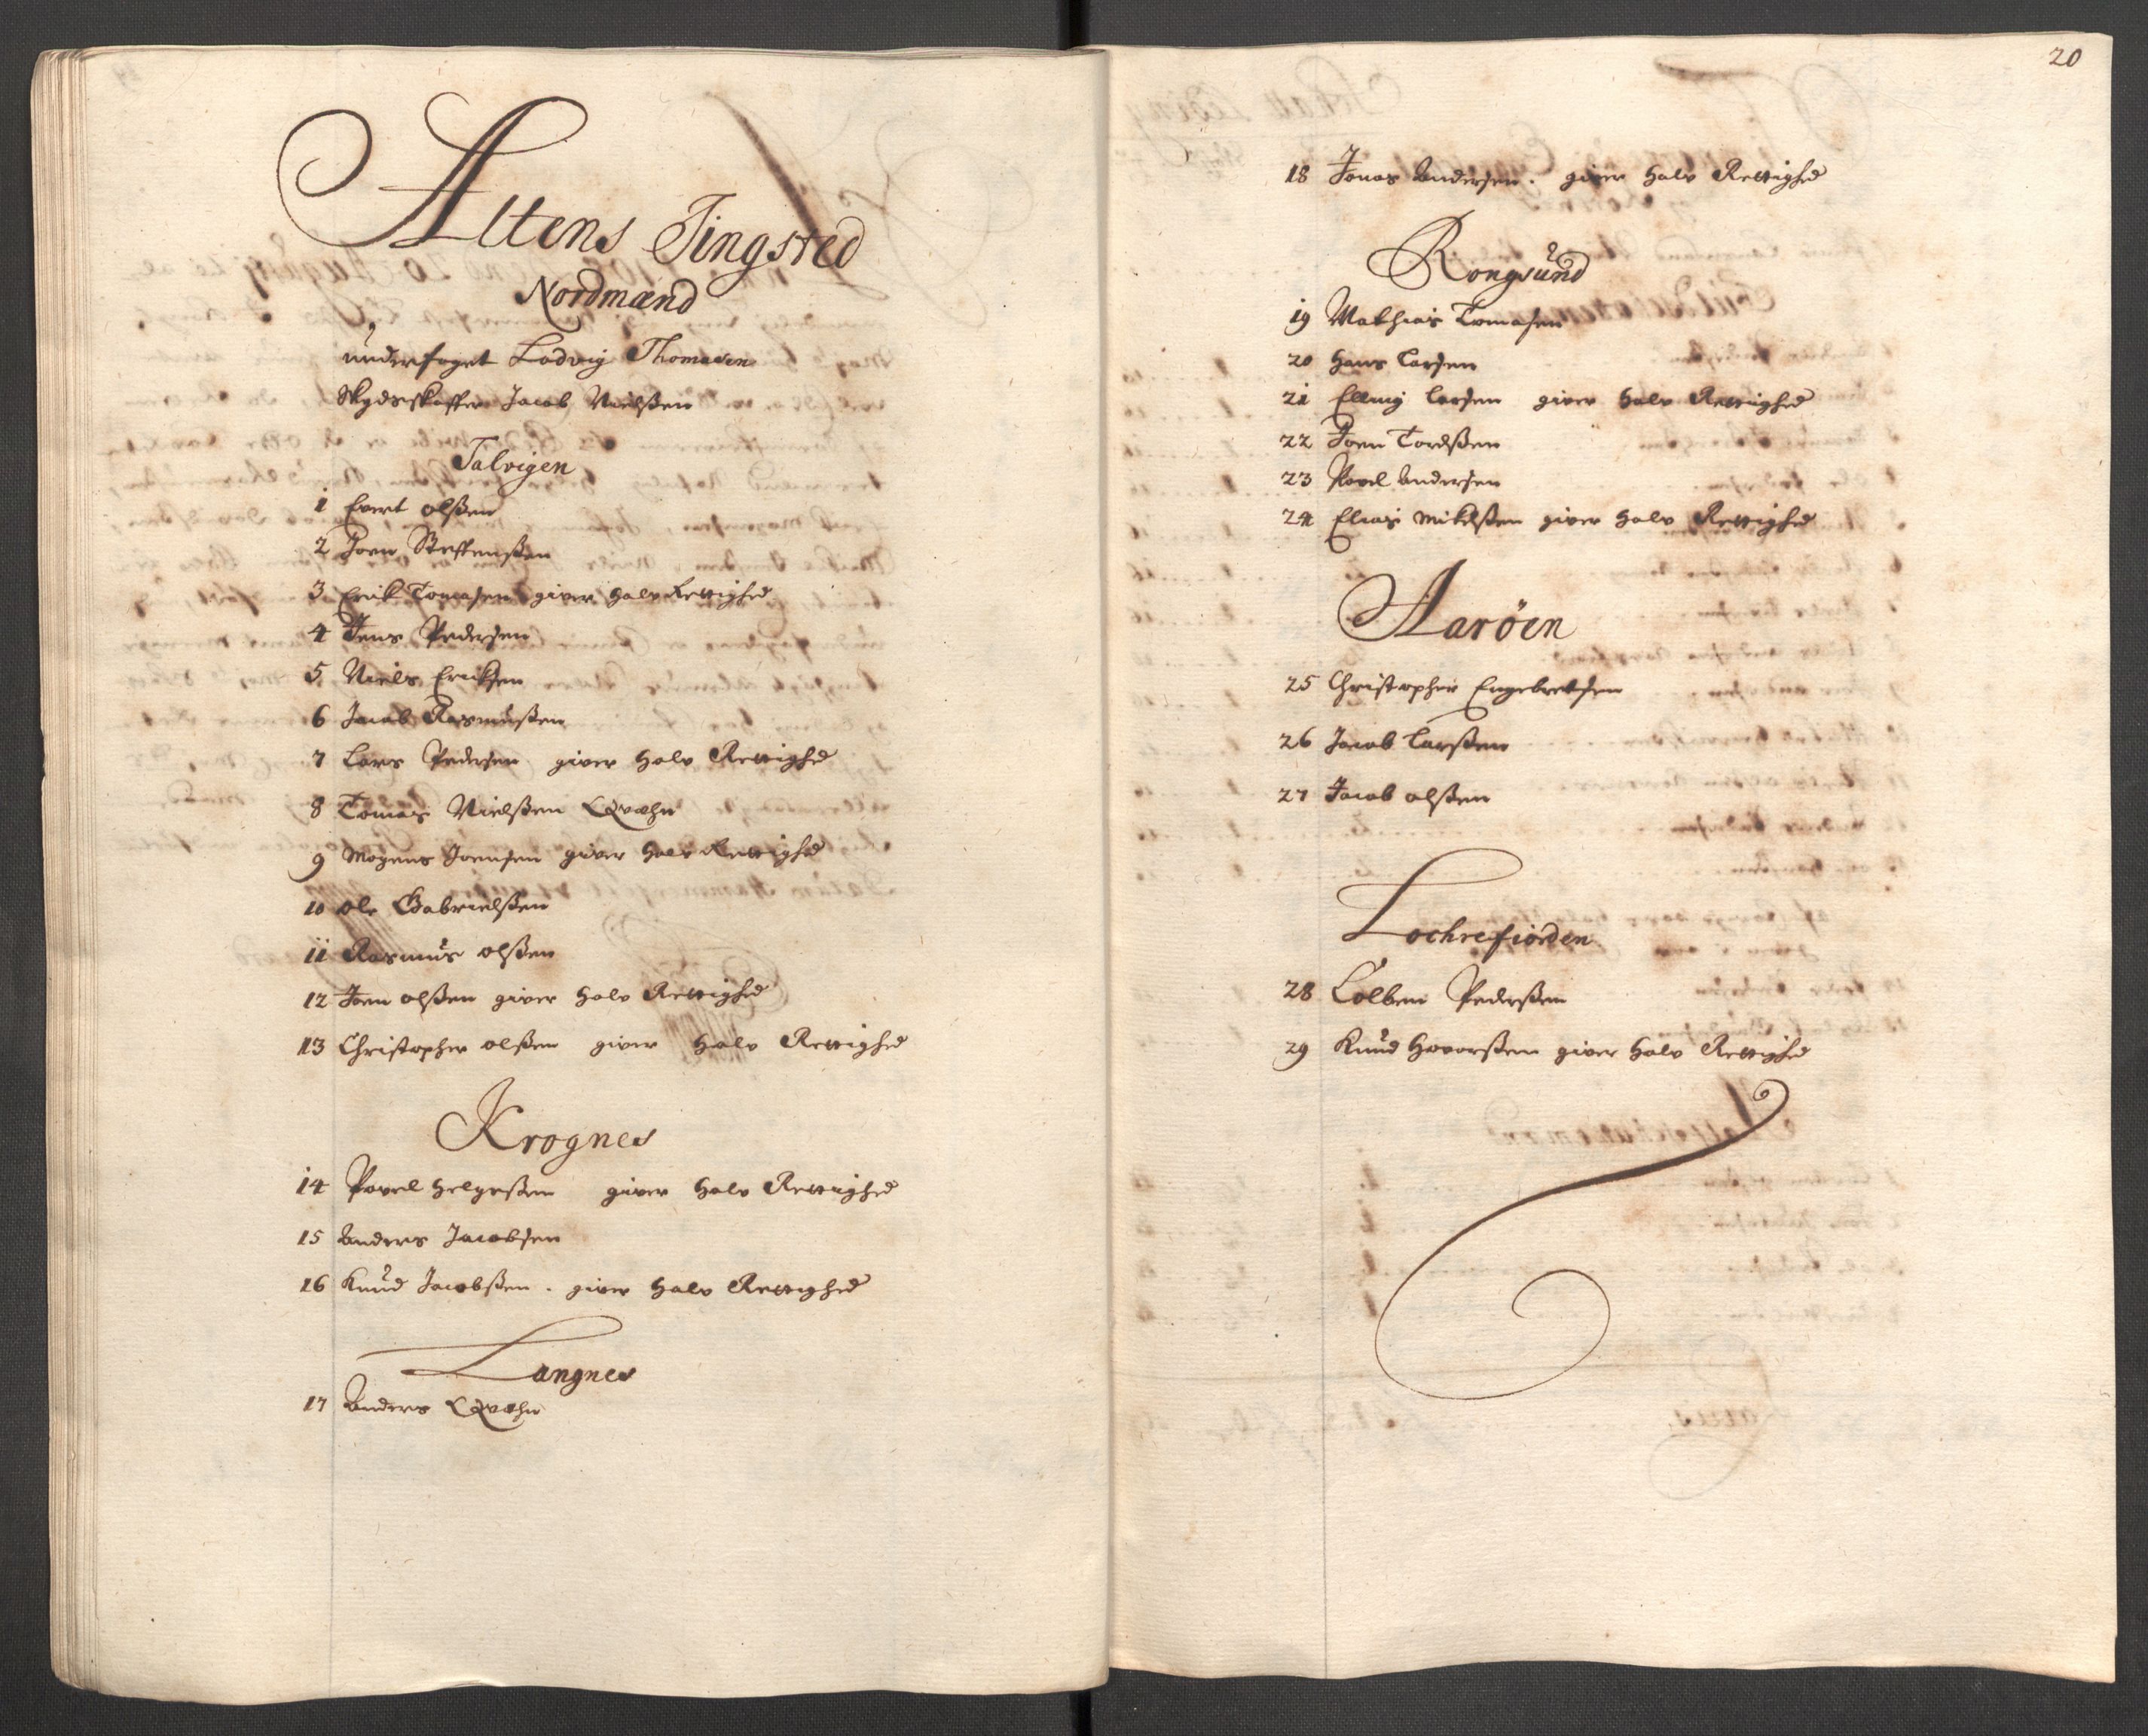 Altens Tingsted
Nordmænd
underfoget Lodvig Thomasen
Skydsskaffer Jacob Nielßen
Talvigen
1 Evert olßen
2 Joen Steffenßen
3 Erick Tomasen giver halv Rettighed
4 Jens Pedersen
5 Niels Ericksen
6 Jacob Rasmußen
7 Lars Pedersen giver halv Rettighed
8 Tomas Nielßen Qvæhn
9 Mogens Joensen giver halv Rettighed
10 ole Gabrielßen
11 Rasmus olßen
12 Joen olßen giver halv Rettighed
13 Christopher olßen giver halv Rettighed
Krognes
14 Povel Helgeßen giver halv Rettighed
15 Anders Jacobsen
16 Knud Jacobßen . giver halv Rettighed
Langnes
17 Anders Qvæhn
20
18 Jonas Andersen . giver halv Rettighed
Rongsund
19 Mathias Tomasen
20 Hans Larsen
21 Elling Larsen giver halv Rettighed
22 Joen Tordßen
23 Povel Andersen
24 Elias Mikelßen giver halv Rettighed
Aarøen
25 Christopher Engebretsen
26 Jacob Larßen
27 Jacob olßen
Lochrefiorden
28 Colben Pederßen
29 Knud Havorßen giver halv Rettighed